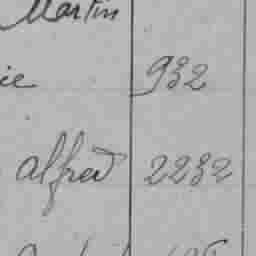 Martin
ie 932
alfred 2232